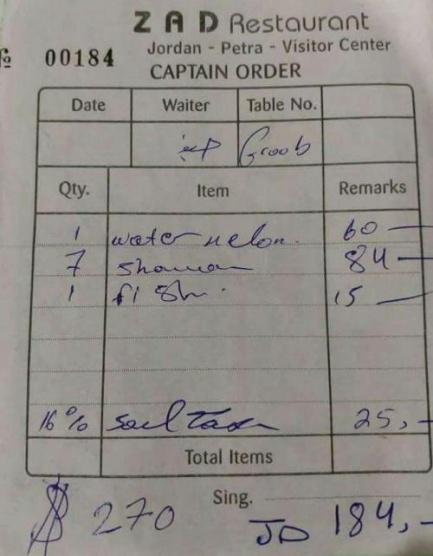 ZAD Restaurant
№ 00184 Jordan - Petra - Visitor Center
CAPTAIN ORDER
Date Waiter Table No.
Groob
Qty. Item Remarks
1 water melon. 60 —
7 84 —
1 fish. 15 —
16% 25,-
Total Items
Sing.
$ 270 JD 184,-